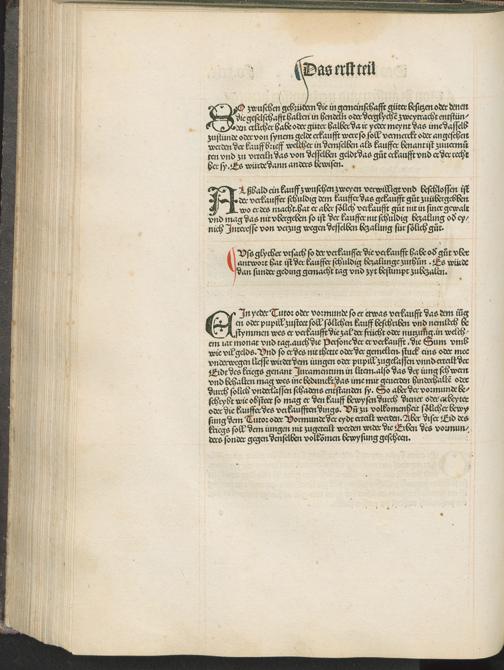 Das erst teil
SO zwuschen gebrüdern die in gemeinschafft güter besitzen oder denen
die geselschafft halten in hendeln oder derglyche zweytracht entstün-
den etlicher habe oder güter halber da ir yeder meynt das imc dasselb
zustande oder von synem gelde erkaufft wer so soll vermerckt oder angesehen
werden der kauff brieff welicher in demselben als kauffer benant ist zuuermů
ten vnd zu vrteiln das von desselben geldt das gůt erkaufft vnd er der recht
her sy. Es würde dann anders bewisen.
ALßbald ein kauff zwuschen zweyen verwilligt vnd beschlossen ist
der verkauffer schuldig dem kauffer das gekaufft gůt zuübergebben
wo er des macht hat er aber sölich verkaufft gůt nit in siner gewalt
vnd mag das nit vbergeben so ist der kauffer nit schuldig bezalung od ey-
nich Interesse von verzug wegen desselben bezalung für sölich gůt.
Vß glycher vrsach so der verkauffer die verkaufft habe od gůt vber
antwort hat ist der kauffer schuldig bezalunge zuthün. Es würde
dan sunder geding gemacht tag vnd zyt bestimpt zubezalen.
EIn yeder Tutor oder vormunde so er etwas verkaufft das dem iüg
en oder pupill zusteet soll sölichen kauff beschriben vnd nemlich be
stymmen wes er verkaufft die zal der frücht oder nutzung. in welich-
em iar monat vnd tag. auch die Persone der er verkaufft. die Sum vmb
wie vil gelds. Vnd so er des nit thette oder der gemelten stuck eins oder mee
vnderwegen liesse wirdet dem iungen oder pupill zugelassen vnnd erteilt der
Eidt des kriegs genant Iuramentum in litem. also das der iung schwern
vnd behalten mag wes ine beduncke. das ime mit geuerden hinderhalte oder
durch solich vnderlassen schadens entstanden sy. So aber der vormunde be-
schrybt wie obsteet so mag er den kauff bewysen durch diener oder arbeyter
oder die kauffer des verkaufften dings. Vn zu volkomenheit sölicher bewy
sung dem Tutor oder Vormunde der eyde erteilt werden. Aber diser Eid des
kriegs soll dem iungen nit zugeteilt werden wider die Erben des vormun-
ders sonder gegen denselben volkomen bewysung gescheen.